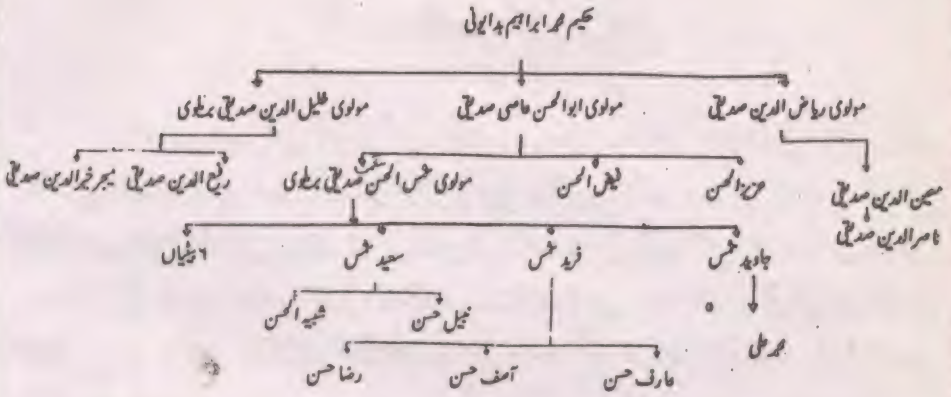 حکیم محمد ابراہیم بدایونی
مولوی ریاض الدین صدیقی مولوی ابوالحسن عاصی صدیقی مولوی خلیل الدین صدیقی بریلوی
معین الدین صدیقی عزیز الحسن فیض الحسن مولوی شمس الحسن شمس صدیقی بریلوی رفیع الدین صدیقی میجر خیر الدین صدیقی
ناصر الدین صدیقی
جاوید شمس فرید شمس سعید شمس ۶ بیٹیاں
محمد علی نبیل حسن شبیہ الحسن
عارف حسن آصف حسن رضا حسن